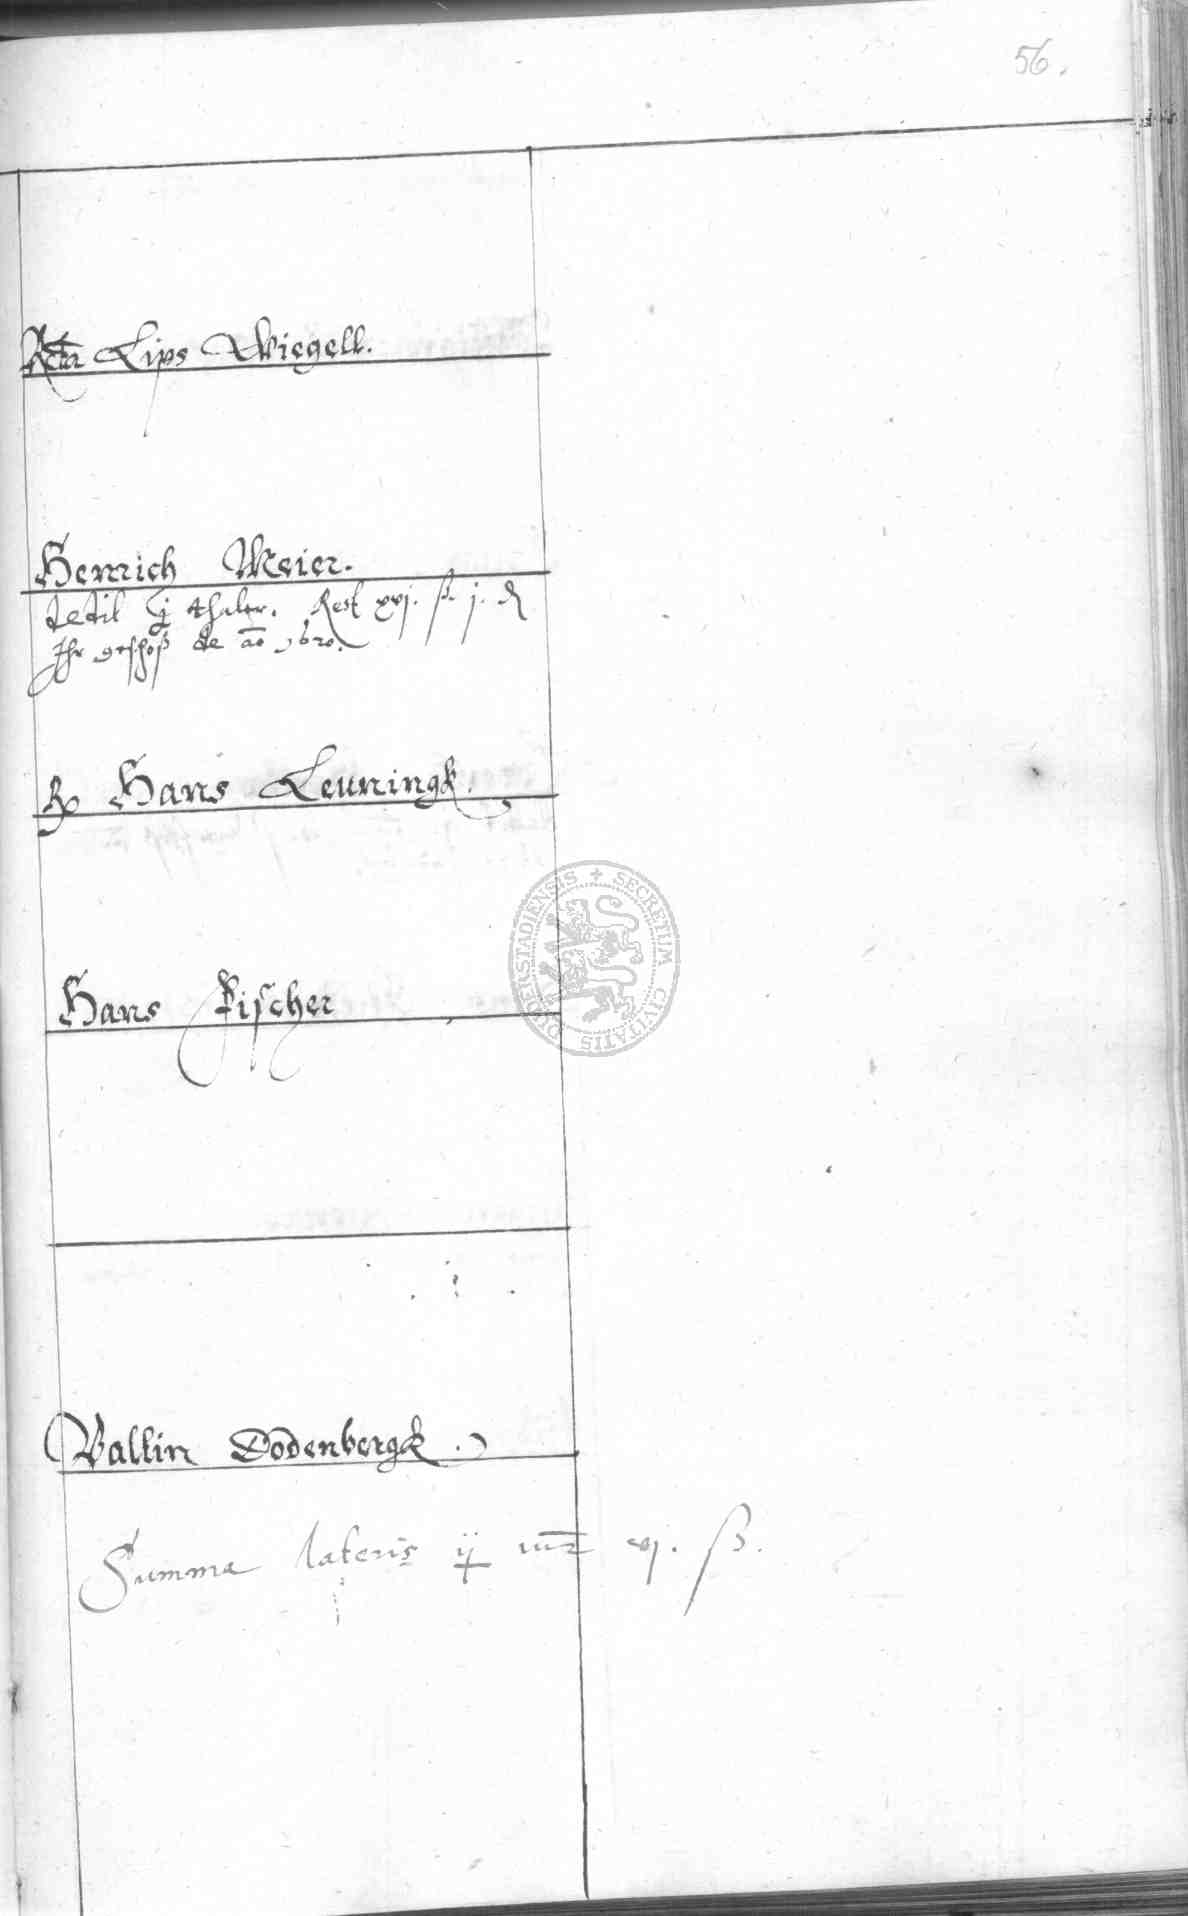 56.
Rcta Lips Wiegell.
Henrich Meier.
dedit j thaler. Rest xvj. ß j. ₰
Ihr geschoß de ao 1620.
Hans Leuningk.
Hans Fischer
SIGILLUM SECRETUM CIVITATIS DUDERSTADIENSIS
Valtin Dodenbergk.
Summa lateris ij mr vj. ß.